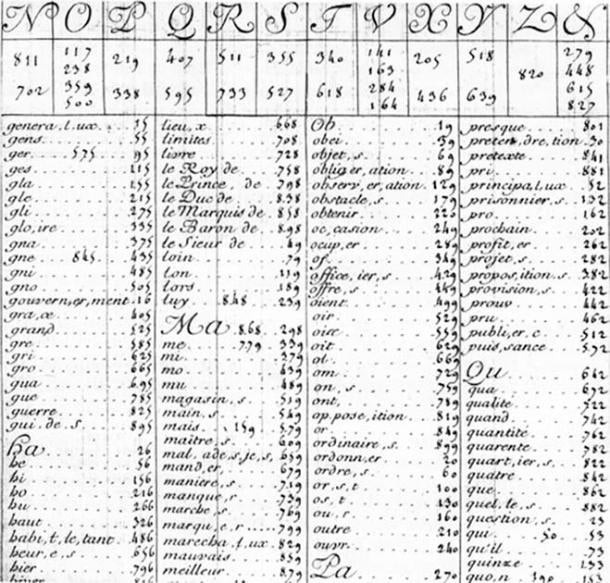 N O P Q R S T V X Y Z &
811 117 219 407 511 355 340 141 205 518 279
238 163 820 448
702 359 338 595 733 527 618 284 436 639 615
500 164 827
genera,l,ux 15
gens 55
ger 575 95
ges 115
gla 155
gle 215
gli 275
glo,ire 335
gna 375
gne 845 435
gni 485
gno 505
gouvern,er,ment 16
gra,ce 405
grand 525
gre 585
gri 625
gro 665
gua 695
gue 785
guerre 825
gui de s 895
ha 26
he 56
hi 156
ho 216
hu 266
haut 326
habit,t,le,tant 486
heur,e,s 656
hier 796
lieu,x 668
limites 708
livre 728
le Roy de 758
le Prince, de 798
le Duc de 838
le Marquis de 858
le Baron de 898
le Sieur de 49
loin 79
lon 119
lors 189
luy 848 239
Ma 868 298
me 779 339
mi 379
mo 439
mu 489
magasin,s 519
main,s 549
mais 159 579
maitre,s 609
mal,ade,s,je,s 659
mand,er 679
maniere,s 719
manque,r 739
marche,s 769
marqu,e,r 799
marecha,l,ux 829
mauvais 859
meilleur 879
Ob 19
obei 39
objet,s 69
oblig,er,ation 89
observ,er,ation 129
obstacle,s 179
obtenir 226
oc,casion 249
ocup,er 289
of 349
office,ier,s 429
offre,s 449
oient 499
oir 529
oise 559
oit 629
ol 669
om 729
on,s 759
ont 789
op,pose,ition 819
or 849
ordinaire,s 899
ordonn,er 20
ordre,s 60
or,s,t 100
os,t 130
ou,s 160
outre 210
ouvr 240
Pa 270
presque 801
preten,dre,tion 30
pretexte 841
pri 881
principa,l,ux 52
prisonnier,s 132
pro 162
prochain 202
profit,er 262
projet,s 282
propos,ition,s 382
provision,s 422
prouv 442
pru 462
publi,er,c 512
puis,sance 572
Qu 642
qua 692
qualité 522
quand 742
quantité 762
quarente 782
quart,ier,s 822
quatre 842
que 862
quel,le,s 882
question,s 23
qui 50 53
qu'il 73
quinze 133